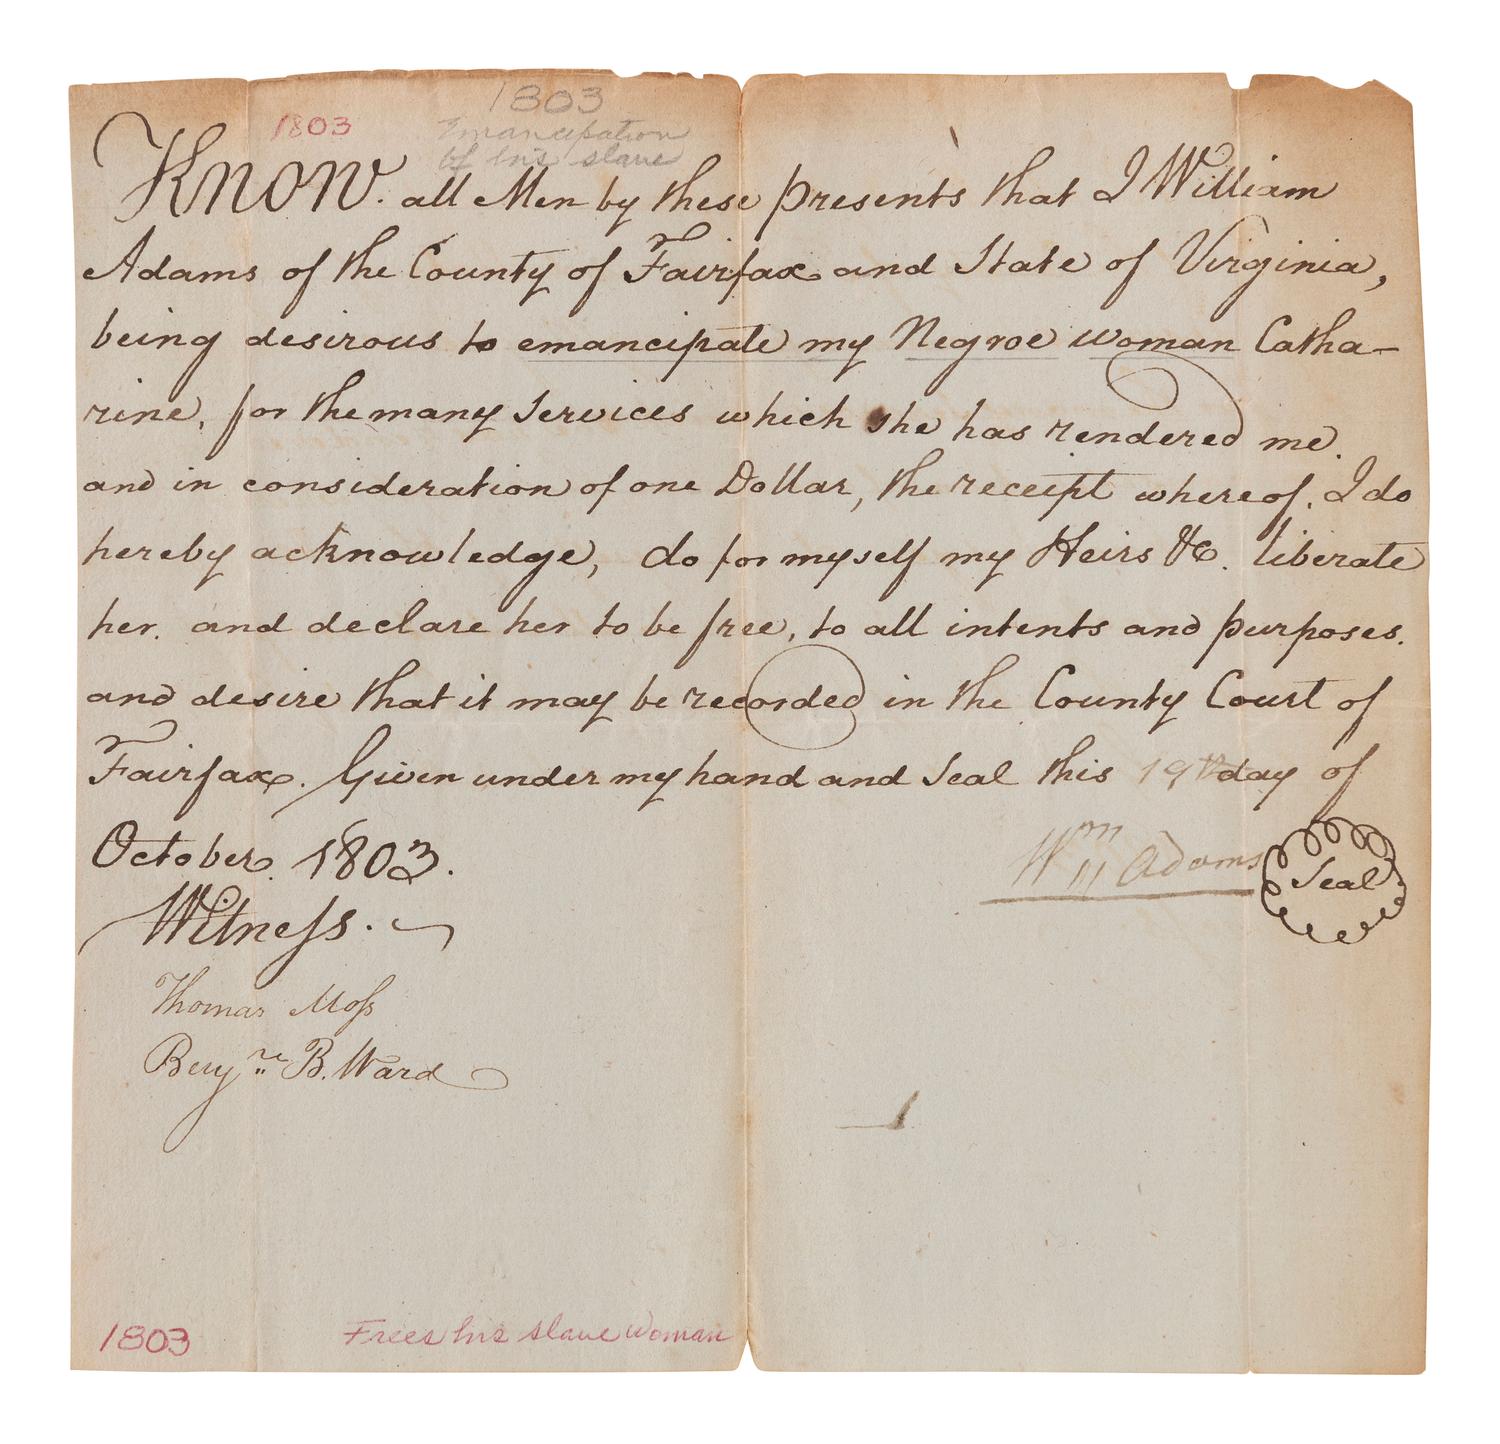 1803
1803
Emancipation
of his slave
Know. all Men by these presents that I William
Adams of the County of Fairfax and State of Virginia,
being desirous to emancipate my Negroe woman Catha-
rine, for the many services which she has rendered me.
and in consideration of one Dollar, the receipt whereof. I do
hereby acknowledge, do for myself my Heirs &c. liberate
her. and declare her to be free, to all intents and purposes.
and desire that it may be recorded in the County Court of
Fairfax. Given under my hand and seal this 19th day of
October. 1803.
Wm Adams Seal
Witness.
Thomas Moss
Benjn B. Ward
1803 Frees his slave woman